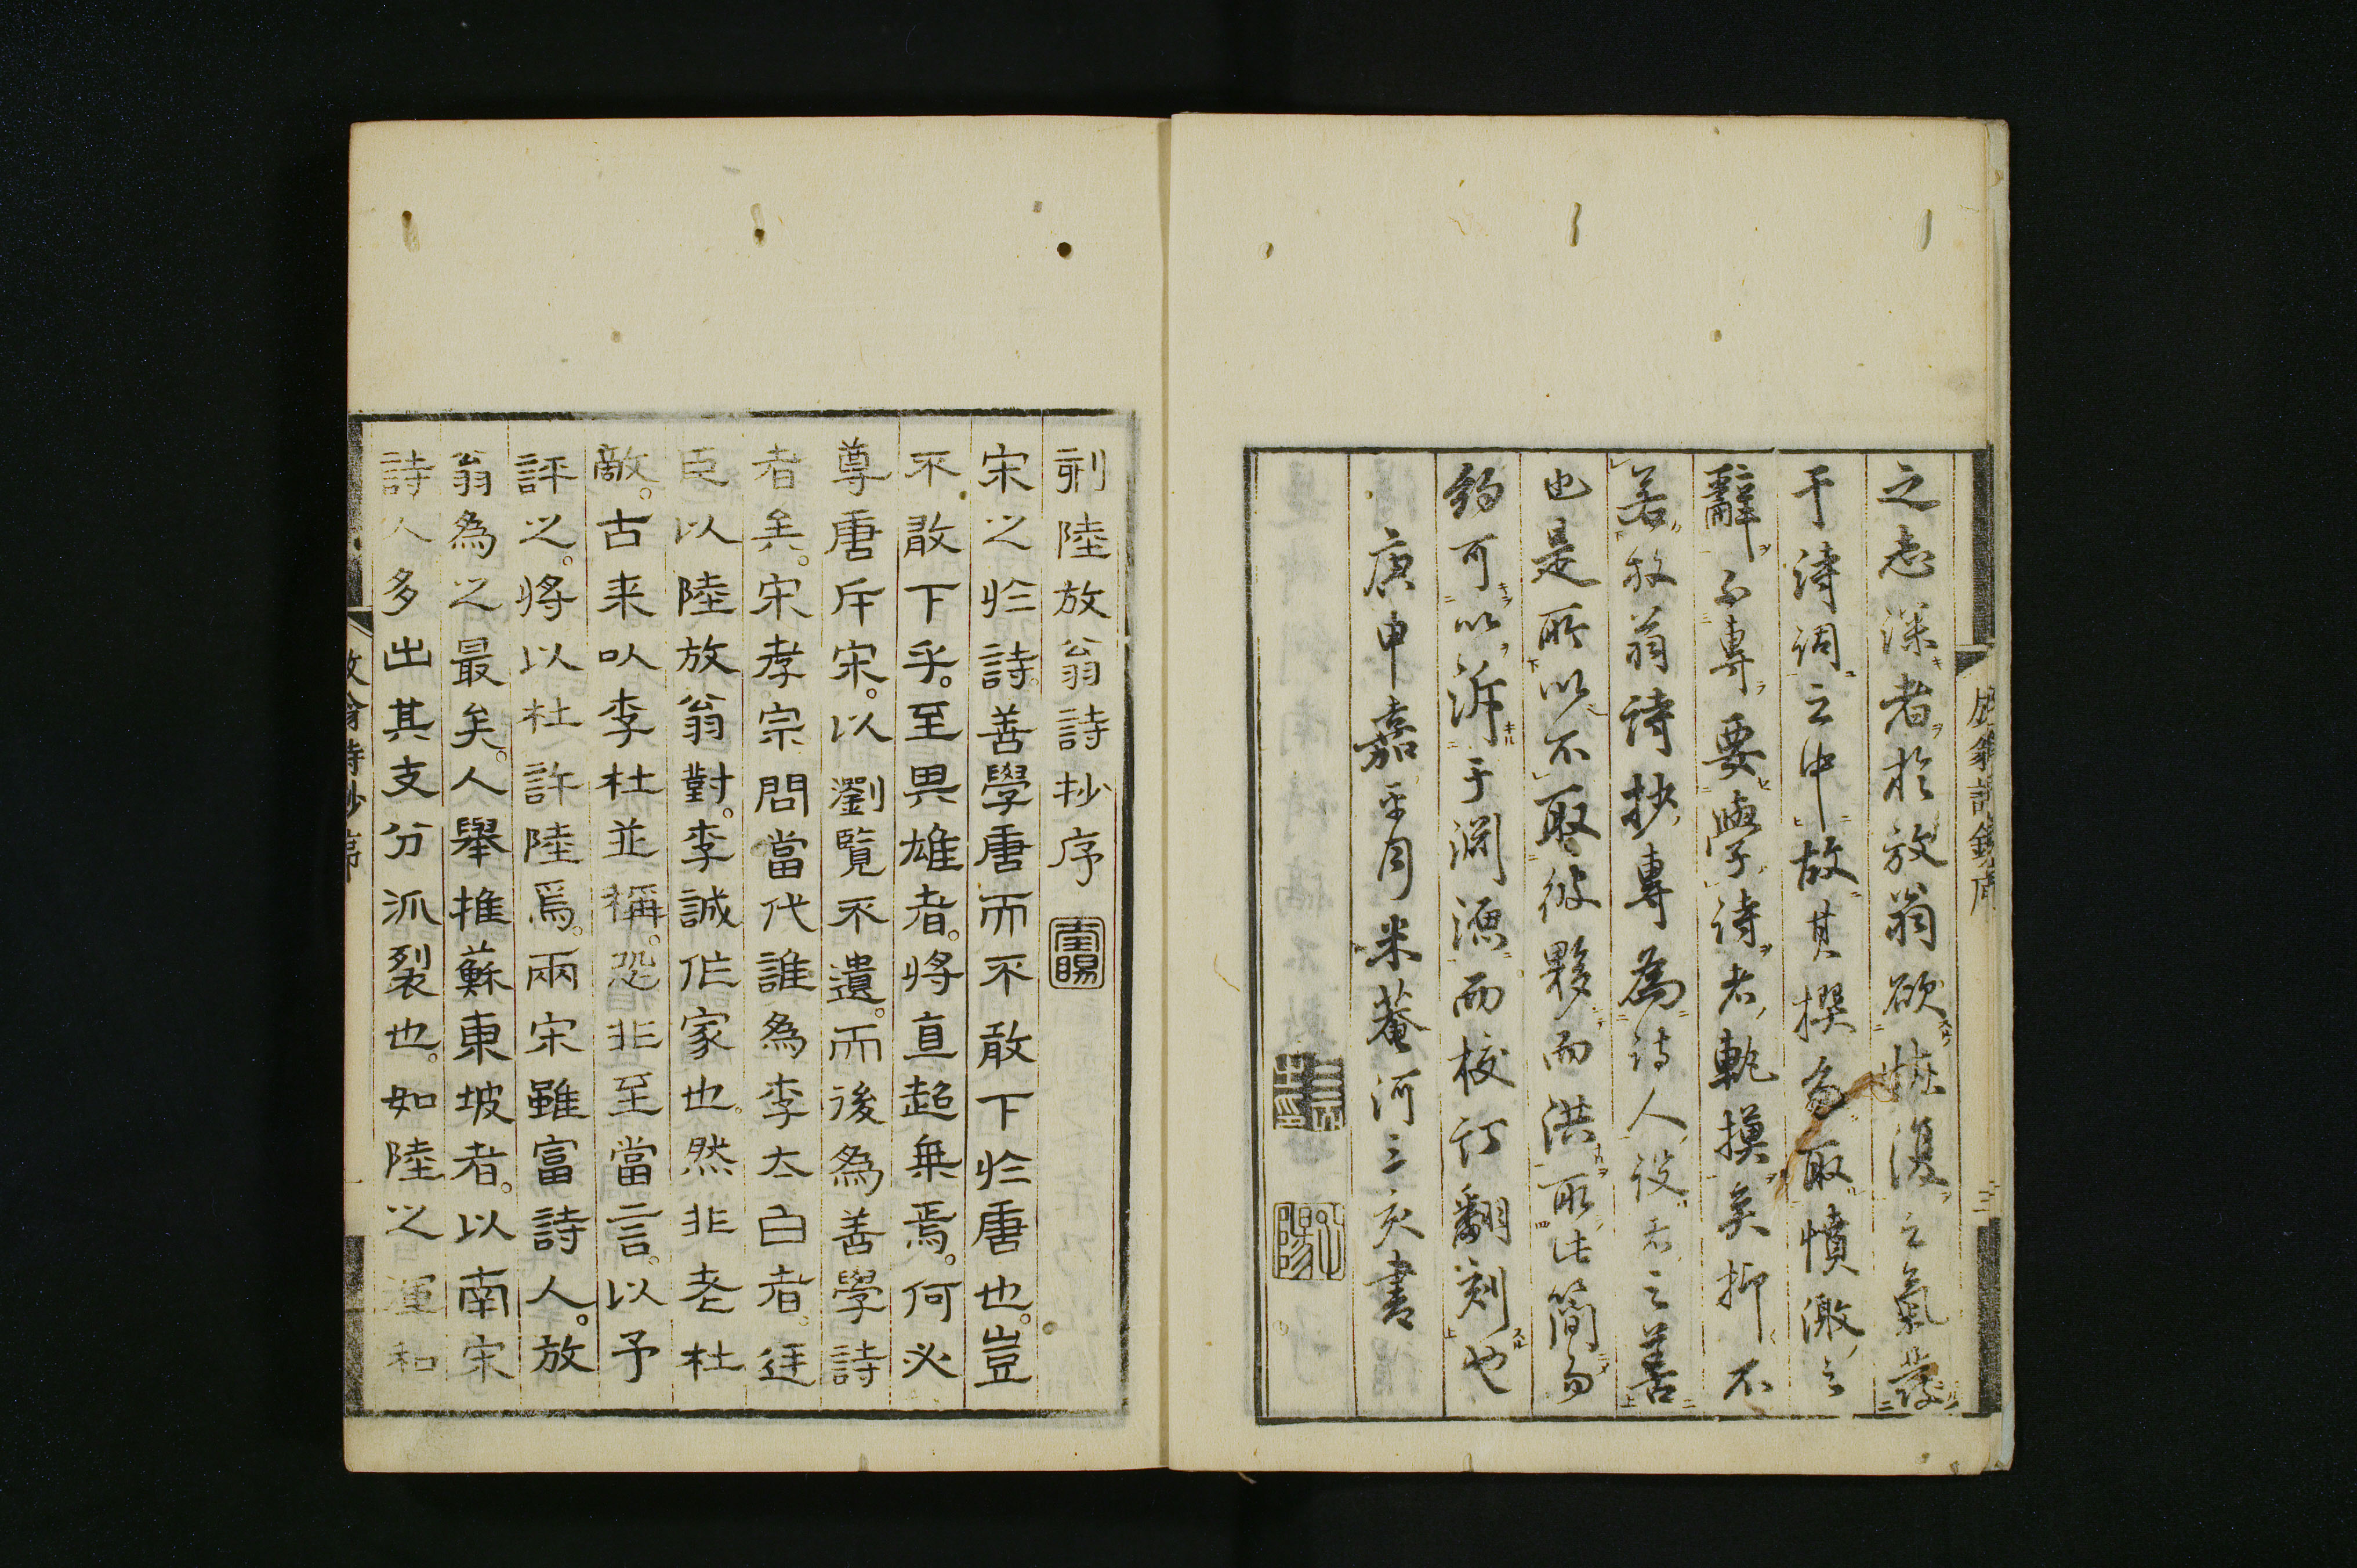 之志深者於放翁欲恢復之氣發
于詩詞之中故其撰多取憤激之
辭不專要學詩者軌摸矣抑不
若放翁詩抄專為詩人設者之善
也是所以不取彼夥而洪取此簡而
鈞可以泝于淵源而校訂翻刻也
庚申嘉平月米菴河三亥書
刻陸放翁詩抄序
宋之於詩善學唐而不敢下於唐也。豈
不敢下乎。至異雄者。將直超乗焉。何必
尊唐斥宋。以瀏覽不遺。而後為善學詩
者矣。宋孝宗問當代誰為李太白者。廷
臣以陸放翁對。李誠作家也。然非老杜
敵。古来以李杜並稱。恐非至當言。以予
評之。將以杜許陸焉。兩宋雖富詩人。放
翁為之最矣。人舉推蘇東坡者。以南宋
詩人多出其支分派裂也。如陸之渾和
放翁詩抄序